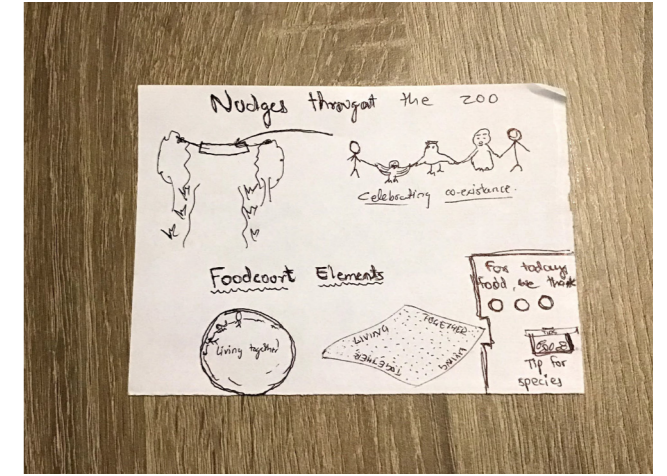 Nudges throught the ZOO
Celebrating co-existance.
Foodcourt Elements
Living together
LIVING
TOGETHER
LIVING
TOGETHER
TOGETHER
For today
food, we thank
Tip for
species